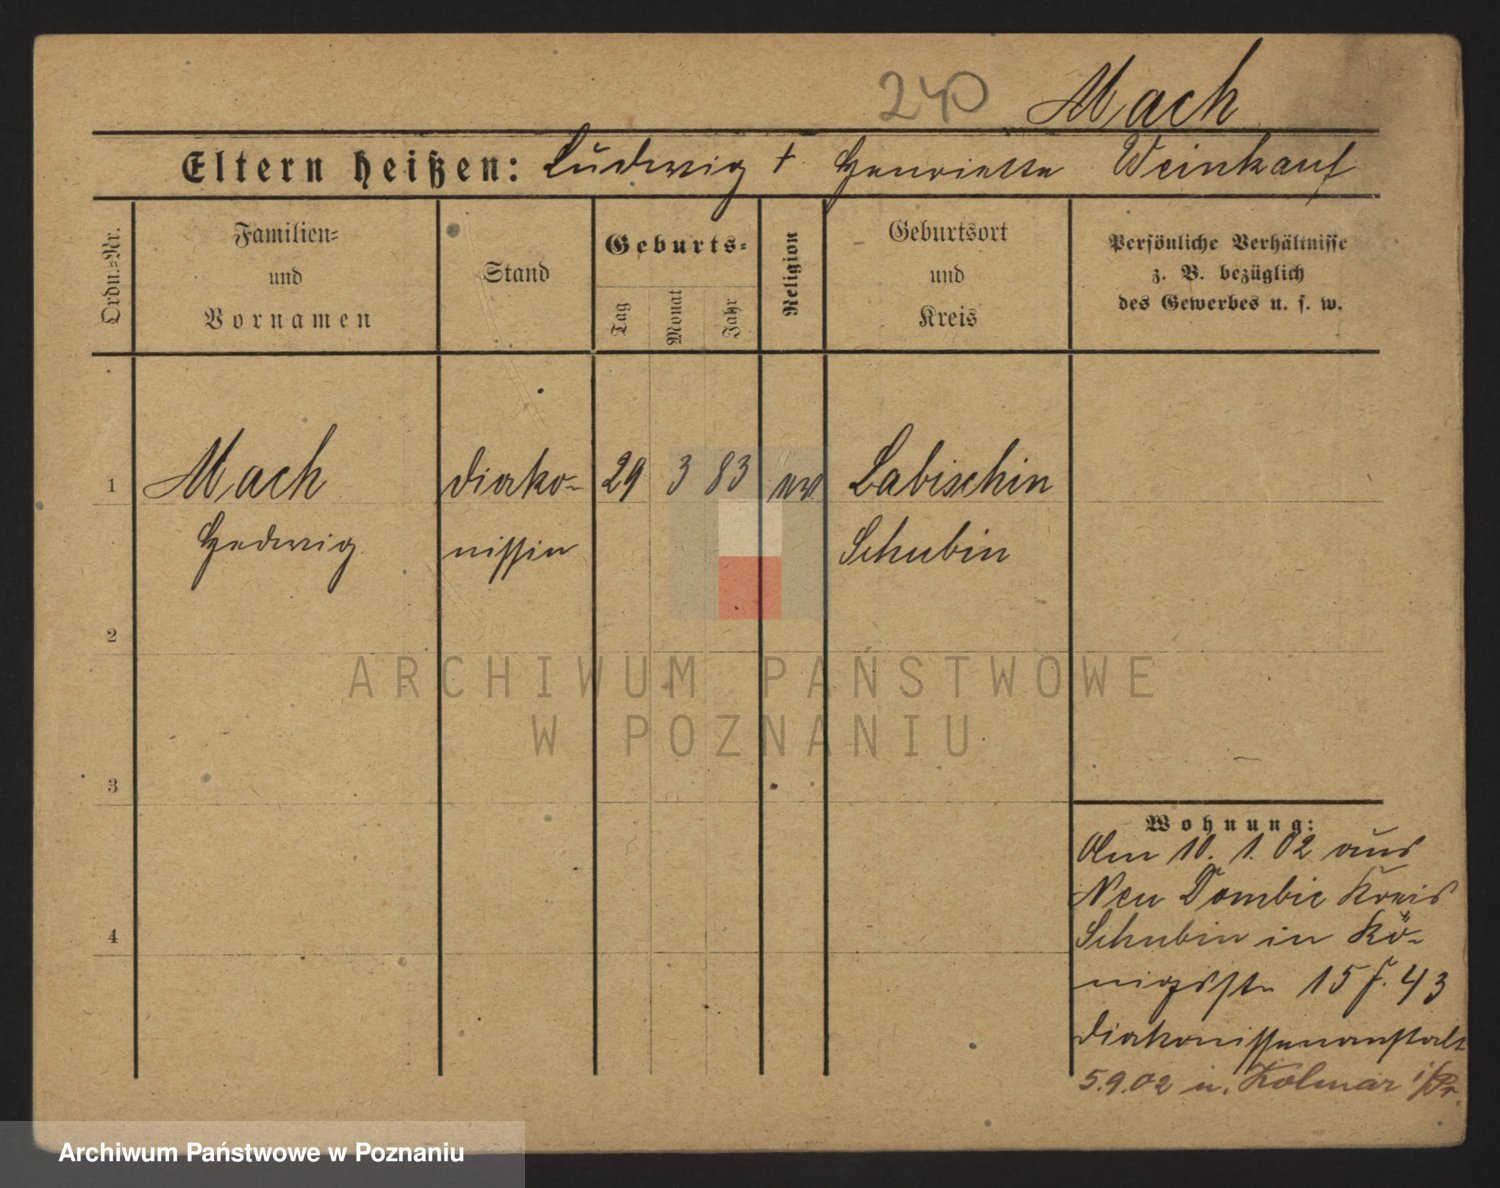 240 Mach
Eltern heißen: Ludwig + Henriette Weinkauf
Ordn.=Nr.
Familien=
und
Vornamen
Stand
Geburts=
Tag
Monat
Jahr
Religion
Geburtsort
und
Kreis
Persönliche Verhältnisse
z. B. bezüglich
des Gewerbes u. s. w.
1 Mach Diako- 29 3 83 ev Labischin
Hedwig nissin Schubin
2
3
4
Wohnung:
Am 10. 1. 02 aus
Neu Dombie Kreis
Schubin in Kö-
nigsstr 15 f. 43
Diakonissenanstalt
5.9.02 n. Kolmar i/Pr.
ARCHIWUM PAŃSTWOWE
W POZNANIU
Archiwum Państwowe w Poznaniu